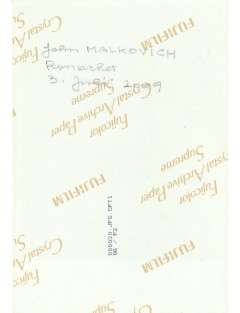 John MALKOVICH
Ronacher
3. Juli 2009
FUJIFILM
Crystal Archive Paper
Fujicolor
Supreme
FUJIFILM
Crystal Archive Paper
Fujicolor
Supreme
FUJIFILM
Crystal Archive Paper
Supreme